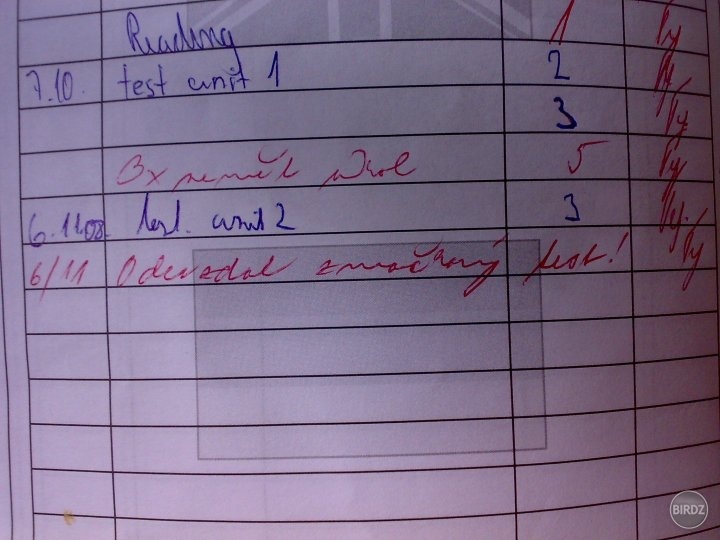 Reading 1 Vy
7.10. test unit 1 2 Vy
3 Vy
3x neměl úkol 5 Vy
6.11.08. test. unit 2 3 Vy.
6/11 Odevzdal zmačkaný test! Vy
BIRDZ